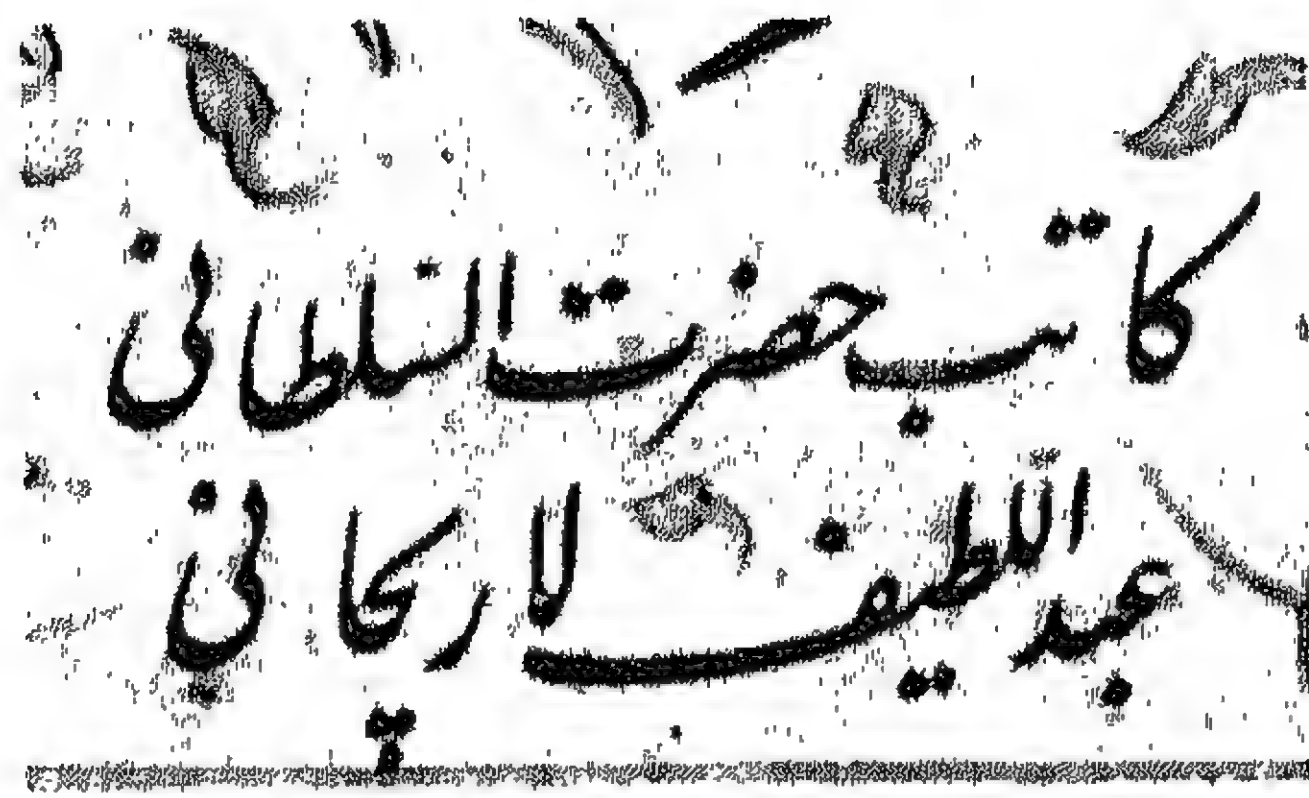 كاتب حضرت السلطانى
عبد اللطيف لاريجانى